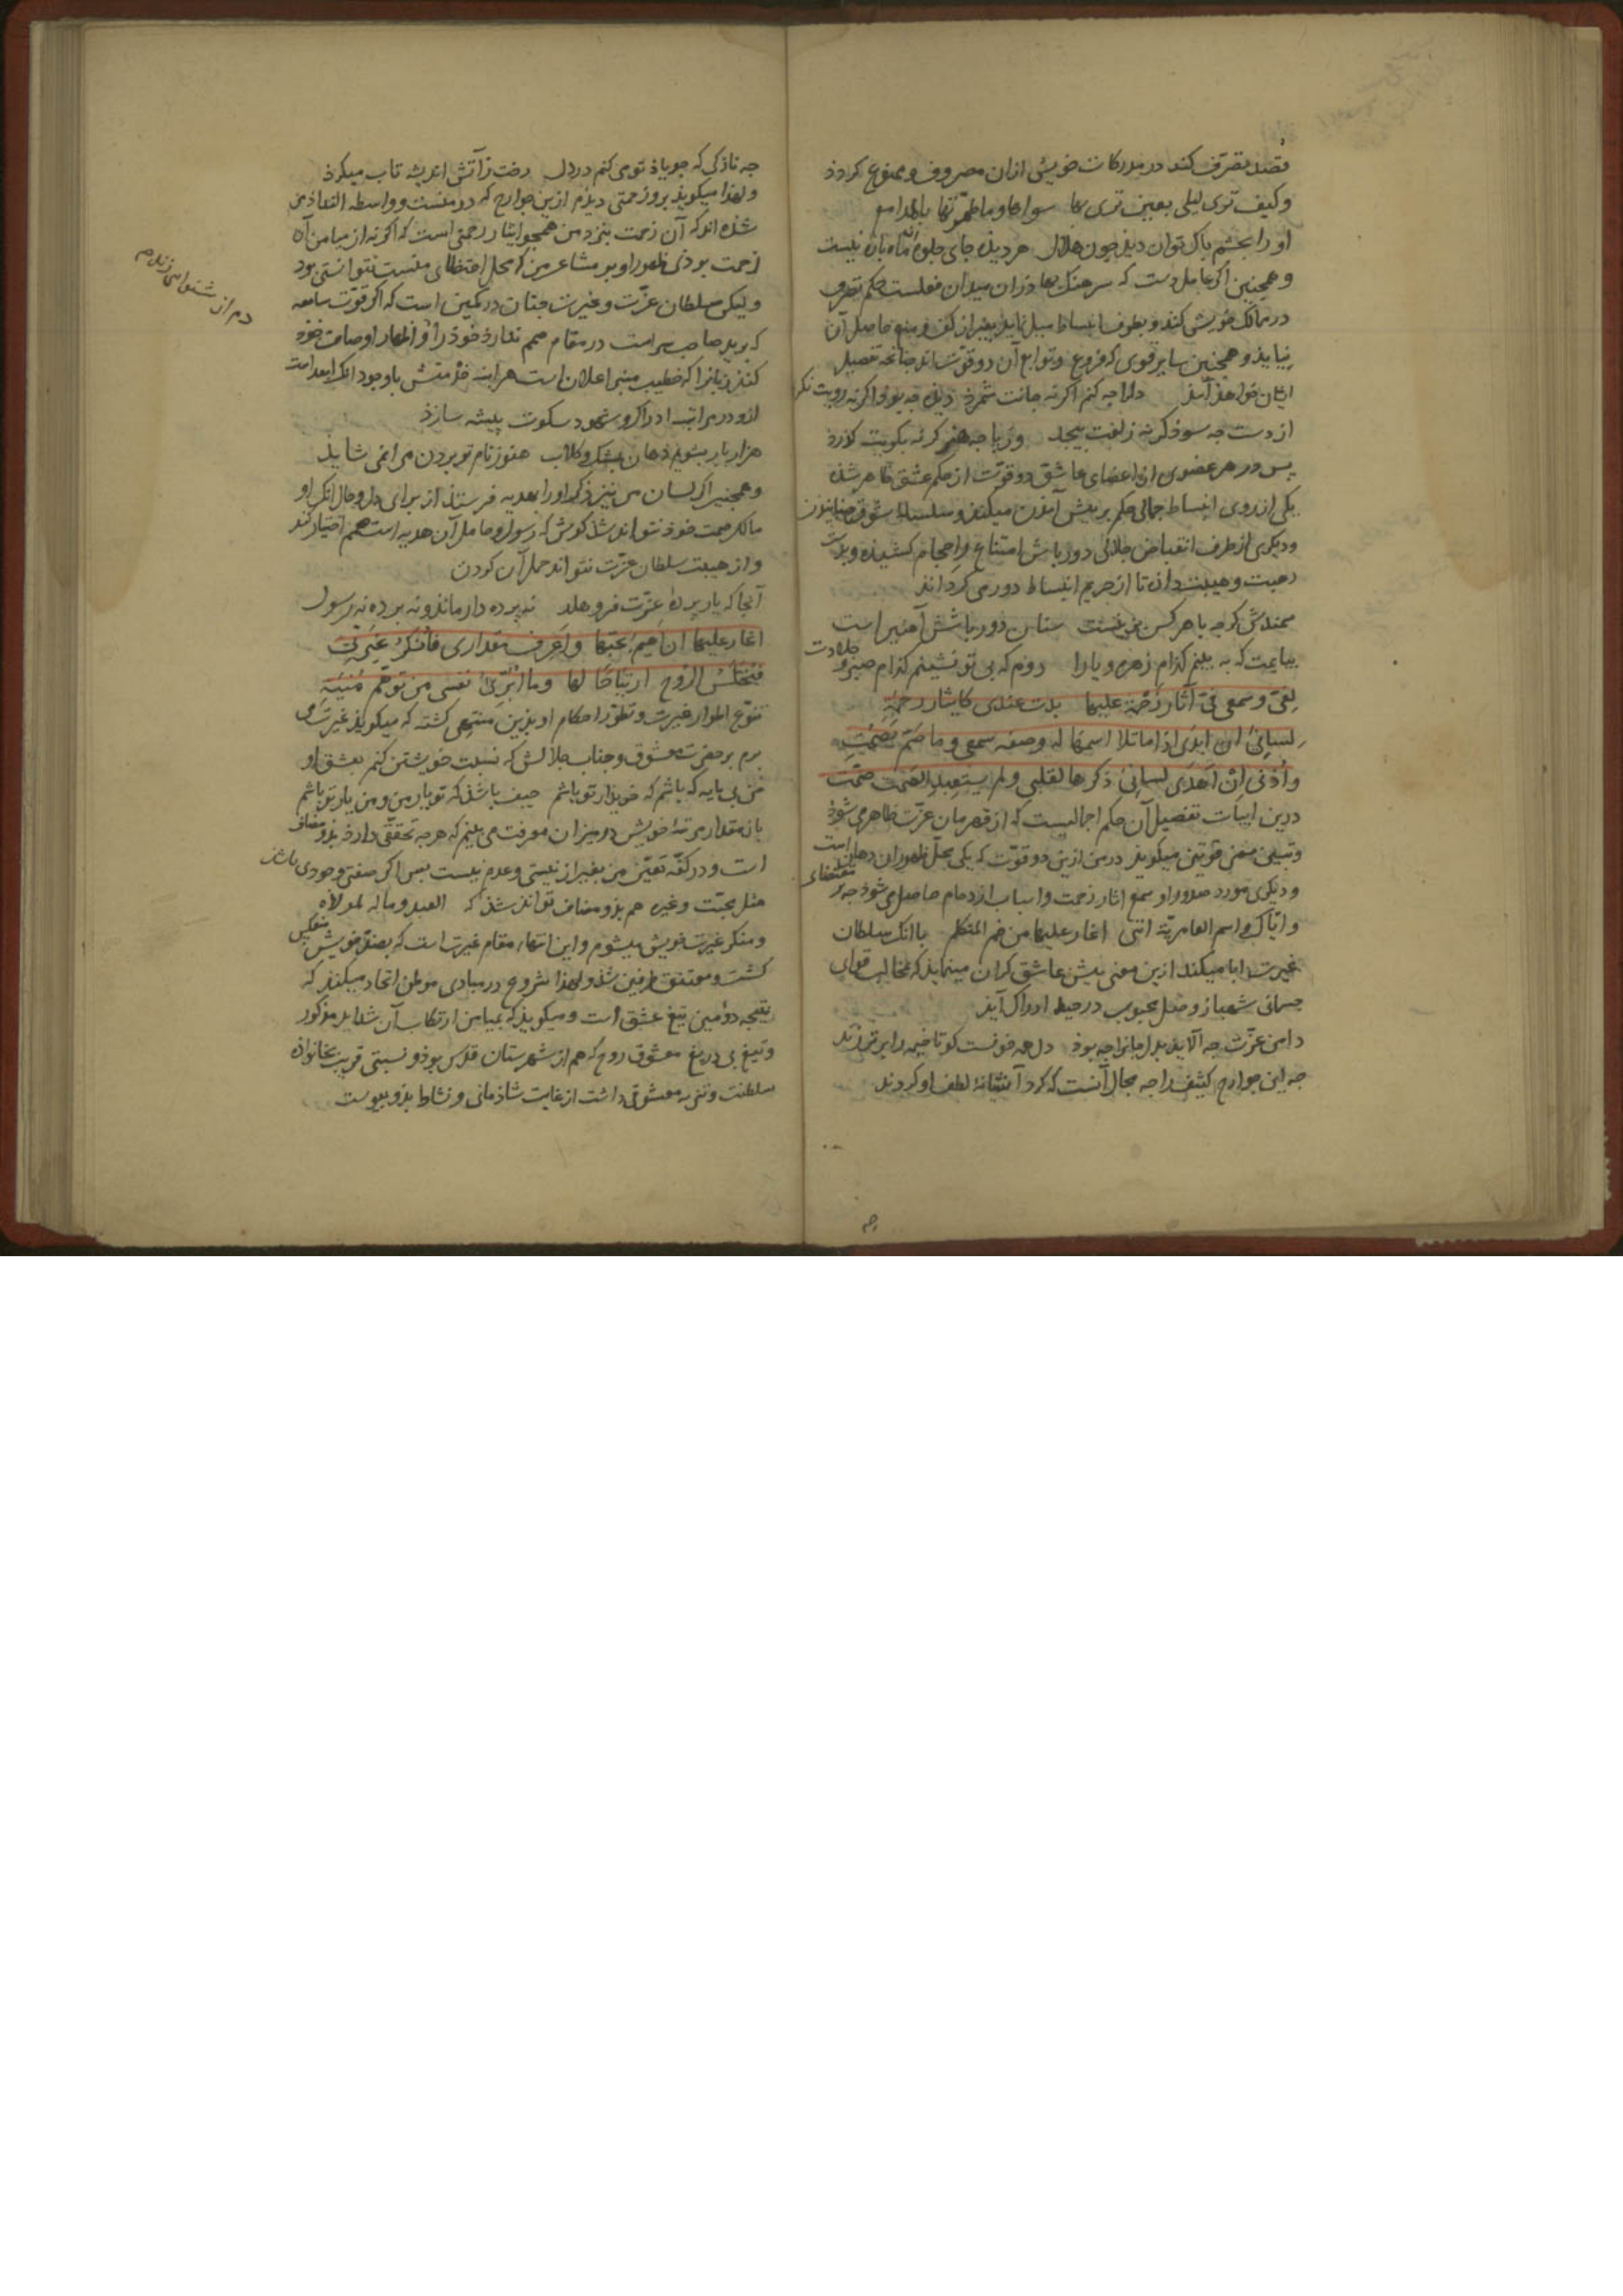 قصد تصرف کند در مدرکات خویش ازان مصروف و ممنوع کردذ
وکیف تری لیلی بعین تری بها سواها وما طهرتها بالمدامع
او را بچشم پاک توان دید چون هلال هر دیذه جای جلوهٔ آن ماه پاره نیست
و همچنین اکر عامل دست که سرهنک بها دران میدان فعلست حکم تصرف
در ممالک خویش کند و بطرف انبساط میل نماید بغیر از کف و منع حاصل آن
نیابذ و همچنین سایر قوی که فروع و توابع آن دو قوت اند چنانچه تفصیل
ایشان خواهذ آمذ دلرا چه کنم اکر نه جانت شمرذ دیذه چه بوذ اکر نه رویت نکرذ
از دست چه سوذ کر نه زلفت پیچد وز پا چه هنر کر نه بکویت کذرذ
پس در هر عضوی از اعضای عاشق دو قوت از حکم عشق ظاهر شده
یکی از روی انبساط جمالی حکم بر پیش آمذن میکند و سلسلهٔ شوق میجنباند
و دیکری از طرف انقباض جلالی دورباش امتناع و احجام کشیذه و بدست
رهبت و هیبت دارد تا از حریم انبساط دور می کرداند
سمندش کرچه با هر کس بزین است سنان دورباشش آهنین است
بیایمت که به بینم کذام زهره و یارا روم که بی تو نشینم کذام صبر و جلادت
لفی وسمعی فی آثار زحمة علیها بدت عندی کایثار رحمة
لسانی ان ابدی اذا ما تلا اسمها له وصفه سمعی وما صم یصمت
واذنی ان اهدی لسانی ذکرها لقلبی ولم یستعبد الصمت صمت
درین ابیات تفصیل آن حکم اجمالیست که از قهرمان عزت ظاهر می شوذ
و تبیین معنی قوتین میکوید در من ازین دو قوت که یکی محل ظهور ان دهان است
و دیکری مورد صدور او سمع اثار زحمت و اسباب ازدحام حاصل می شوذ چه بر مقتضاء
وایاک واسم العامریة اننی اغار علیها من فم المتکلم با انک سلطان
غیرت ابا میکند ازین معنی پیش عاشق کران مینماید که مخالب قوای
جسمانی شهباز وصل محبوب در حیطه ادراک آید
دامن عزت چه آلاید بدل جانرا چه بوذ دل چه خونست کو تا خیمه را برتر زند
چه این جوارح کثیف را چه مجال آنست که کرد آستانهٔ لطف او کردند
چه نازکی که چو یاذ تو می کنم در دل رخت ز آتش اندیشه تاب میکیرذ
و لهذا میکوید بروز زحمتی دیذم ازین جوارح که در منست و واسطه التذاذ من
شذه اند که آن زحمت بنزد من همچو ایثار رحمتی است که اکر نه از میامن آن
زحمت بوذی ظهور او بر مشاعر من که محل احتظای منست نتوانستی بود
و لیکن سلطان عزت و غیرت چنان در کمین است که اکر قوت سامعه
که برید صاحب سر است در مقام صمم ندارذ خوذ را و اظهار اوصاف خوذ
کند زبانرا که خطیب منبر اعلان است هر اینه خذمتش با وجود انک ابعد است
ازو در مراتب ادراک و شهود سکوت پیشه سازذ
هزار بار بشویم دهان بمشک و کلاب هنوز نام تو بردن مرا نمی شاید
و همچنین اکر لسان من نیز ذکر او را بهدیه فرستذ از برای دل و حال انک او
مالک صمت خوذ نتواند شذ کوش که رسول و حامل آن هدیه است صمم اختیار کند
و از هیبت سلطان عزت نتواند حمل آن کردن
آنجا که یار پردهٔ عزت فرو هلد نه پرده دار ماند و نه پرده نه رسول
اغار علیها ان اهیم بحبها واعرف مقداری فانکر غیرتی
فتختلس الروح ارتیاحا لها وما ابری نفسی من توهم منیة
تنوع اطوار غیرت و تطور احکام او بذین منتهی کشته که میکوید غیرت می
برم بر حضرت معشوق و جناب جلالش که نسبت خویشتن کنم بعشق او
من بی پایه که باشم که خریدار تو باشم حیف باشذ که تو یار من و من یار تو باشم
باز مقدار مرتبهٔ خویش در میزان معرفت می بینم که هرچه تحققی دارذ بدو مضاف
است و در کفهٔ تعین من بغیر از نیستی و عدم نیست پس اکر صفتی وجودی باشذ
مثل محبت و غیره هم بذو مضاف تواند شذ که العبد وماله لمولاه
و منکر غیرت خویش میشوم و این انتهاء مقام غیرت است که بضد خویش منعکس
کشت و معتنق طرفین شذ و لهذا شروع در مبادی موطن اتحاد میکند که
نتیجه دومین تیغ عشق است و میکوید که بمیامن ارتکاب آن شداید مذکور
و تیغ بی دریغ معشوق روح که هم از شهرستان قدس بوذ و نسبتی قریب بخانواذه
سلطنت و تنزیه معشوق داشت از غایت شاذمانی و نشاط بذو پیوست